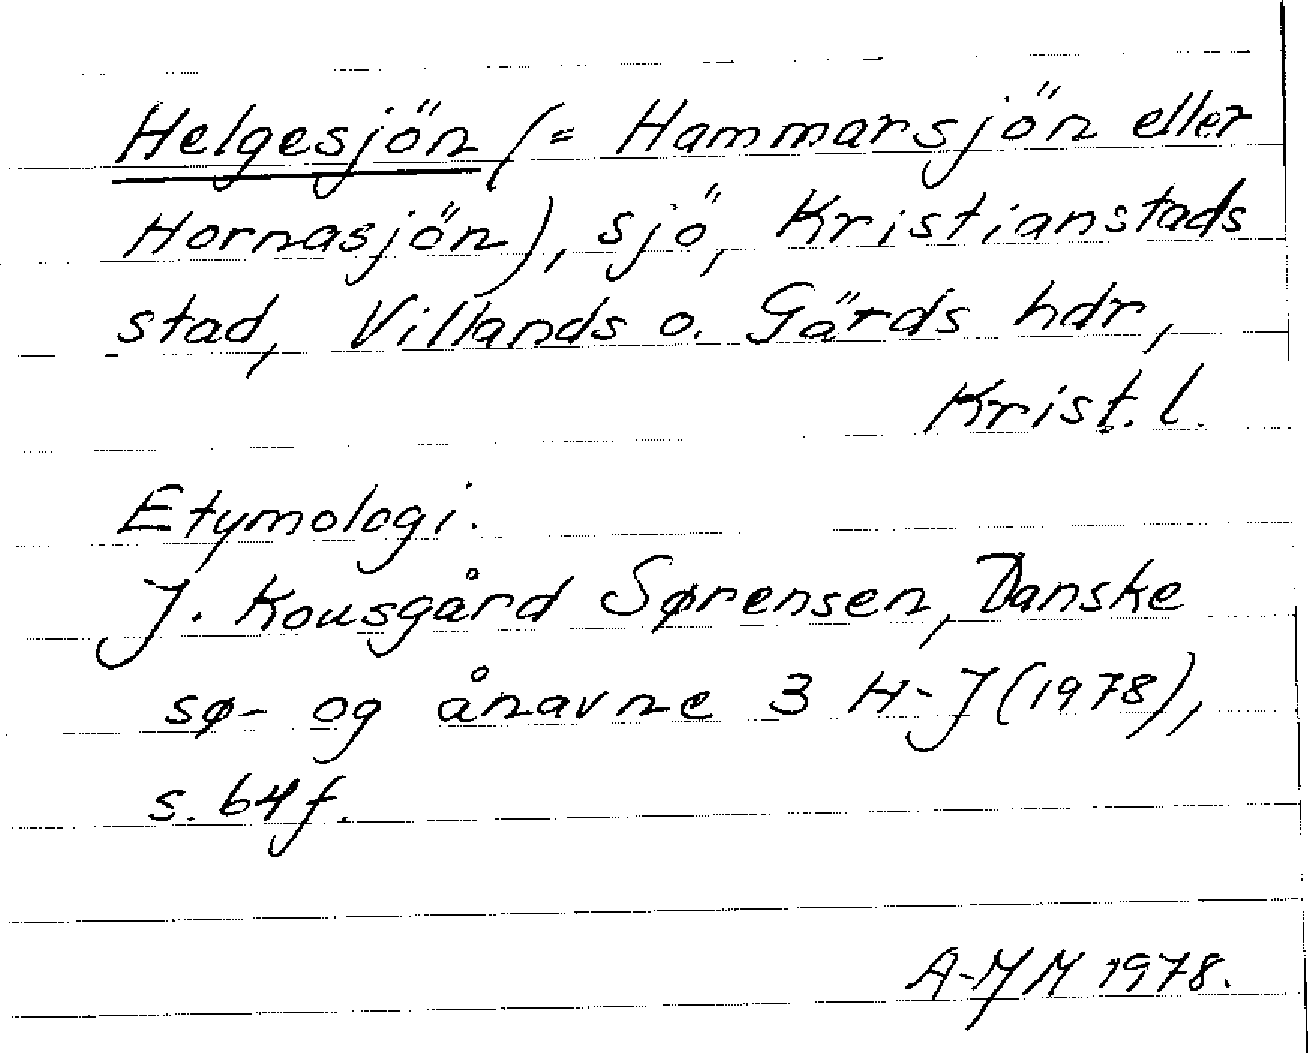 Helgesjön (= Hammarsjön eller
Hornasjön), sjö, Kristianstads
stad, Villands o. Gärds hdr,
Krist. l.
Etymologi.
J. Kousgård Sørensen, Danske
sø- og ånavne 3 H-J (1978),
s. 64 f.
A-MM 1978.